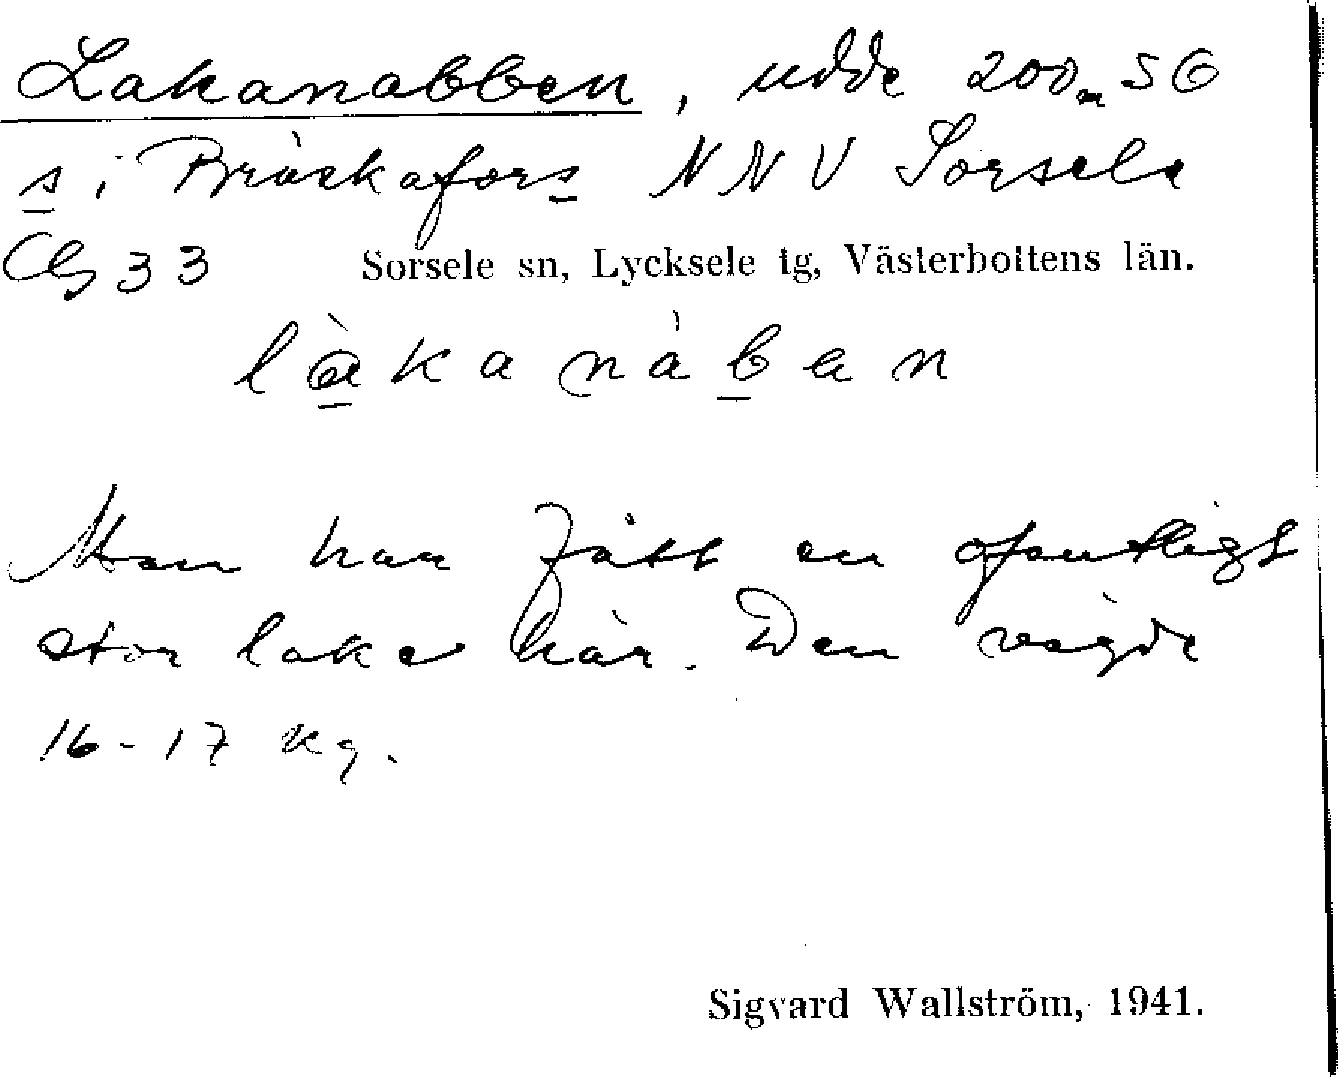 Lakanabben, udde 200m SG
s i Bräskafors NNV Sorsele
Cg 33 Sorsele sn, Lycksele tg, Västerbottens län.
làkanàben
Man har fått en ofantligt
stor lake här. Den vägde
16-17 kg.
Sigvard Wallström, 1941.